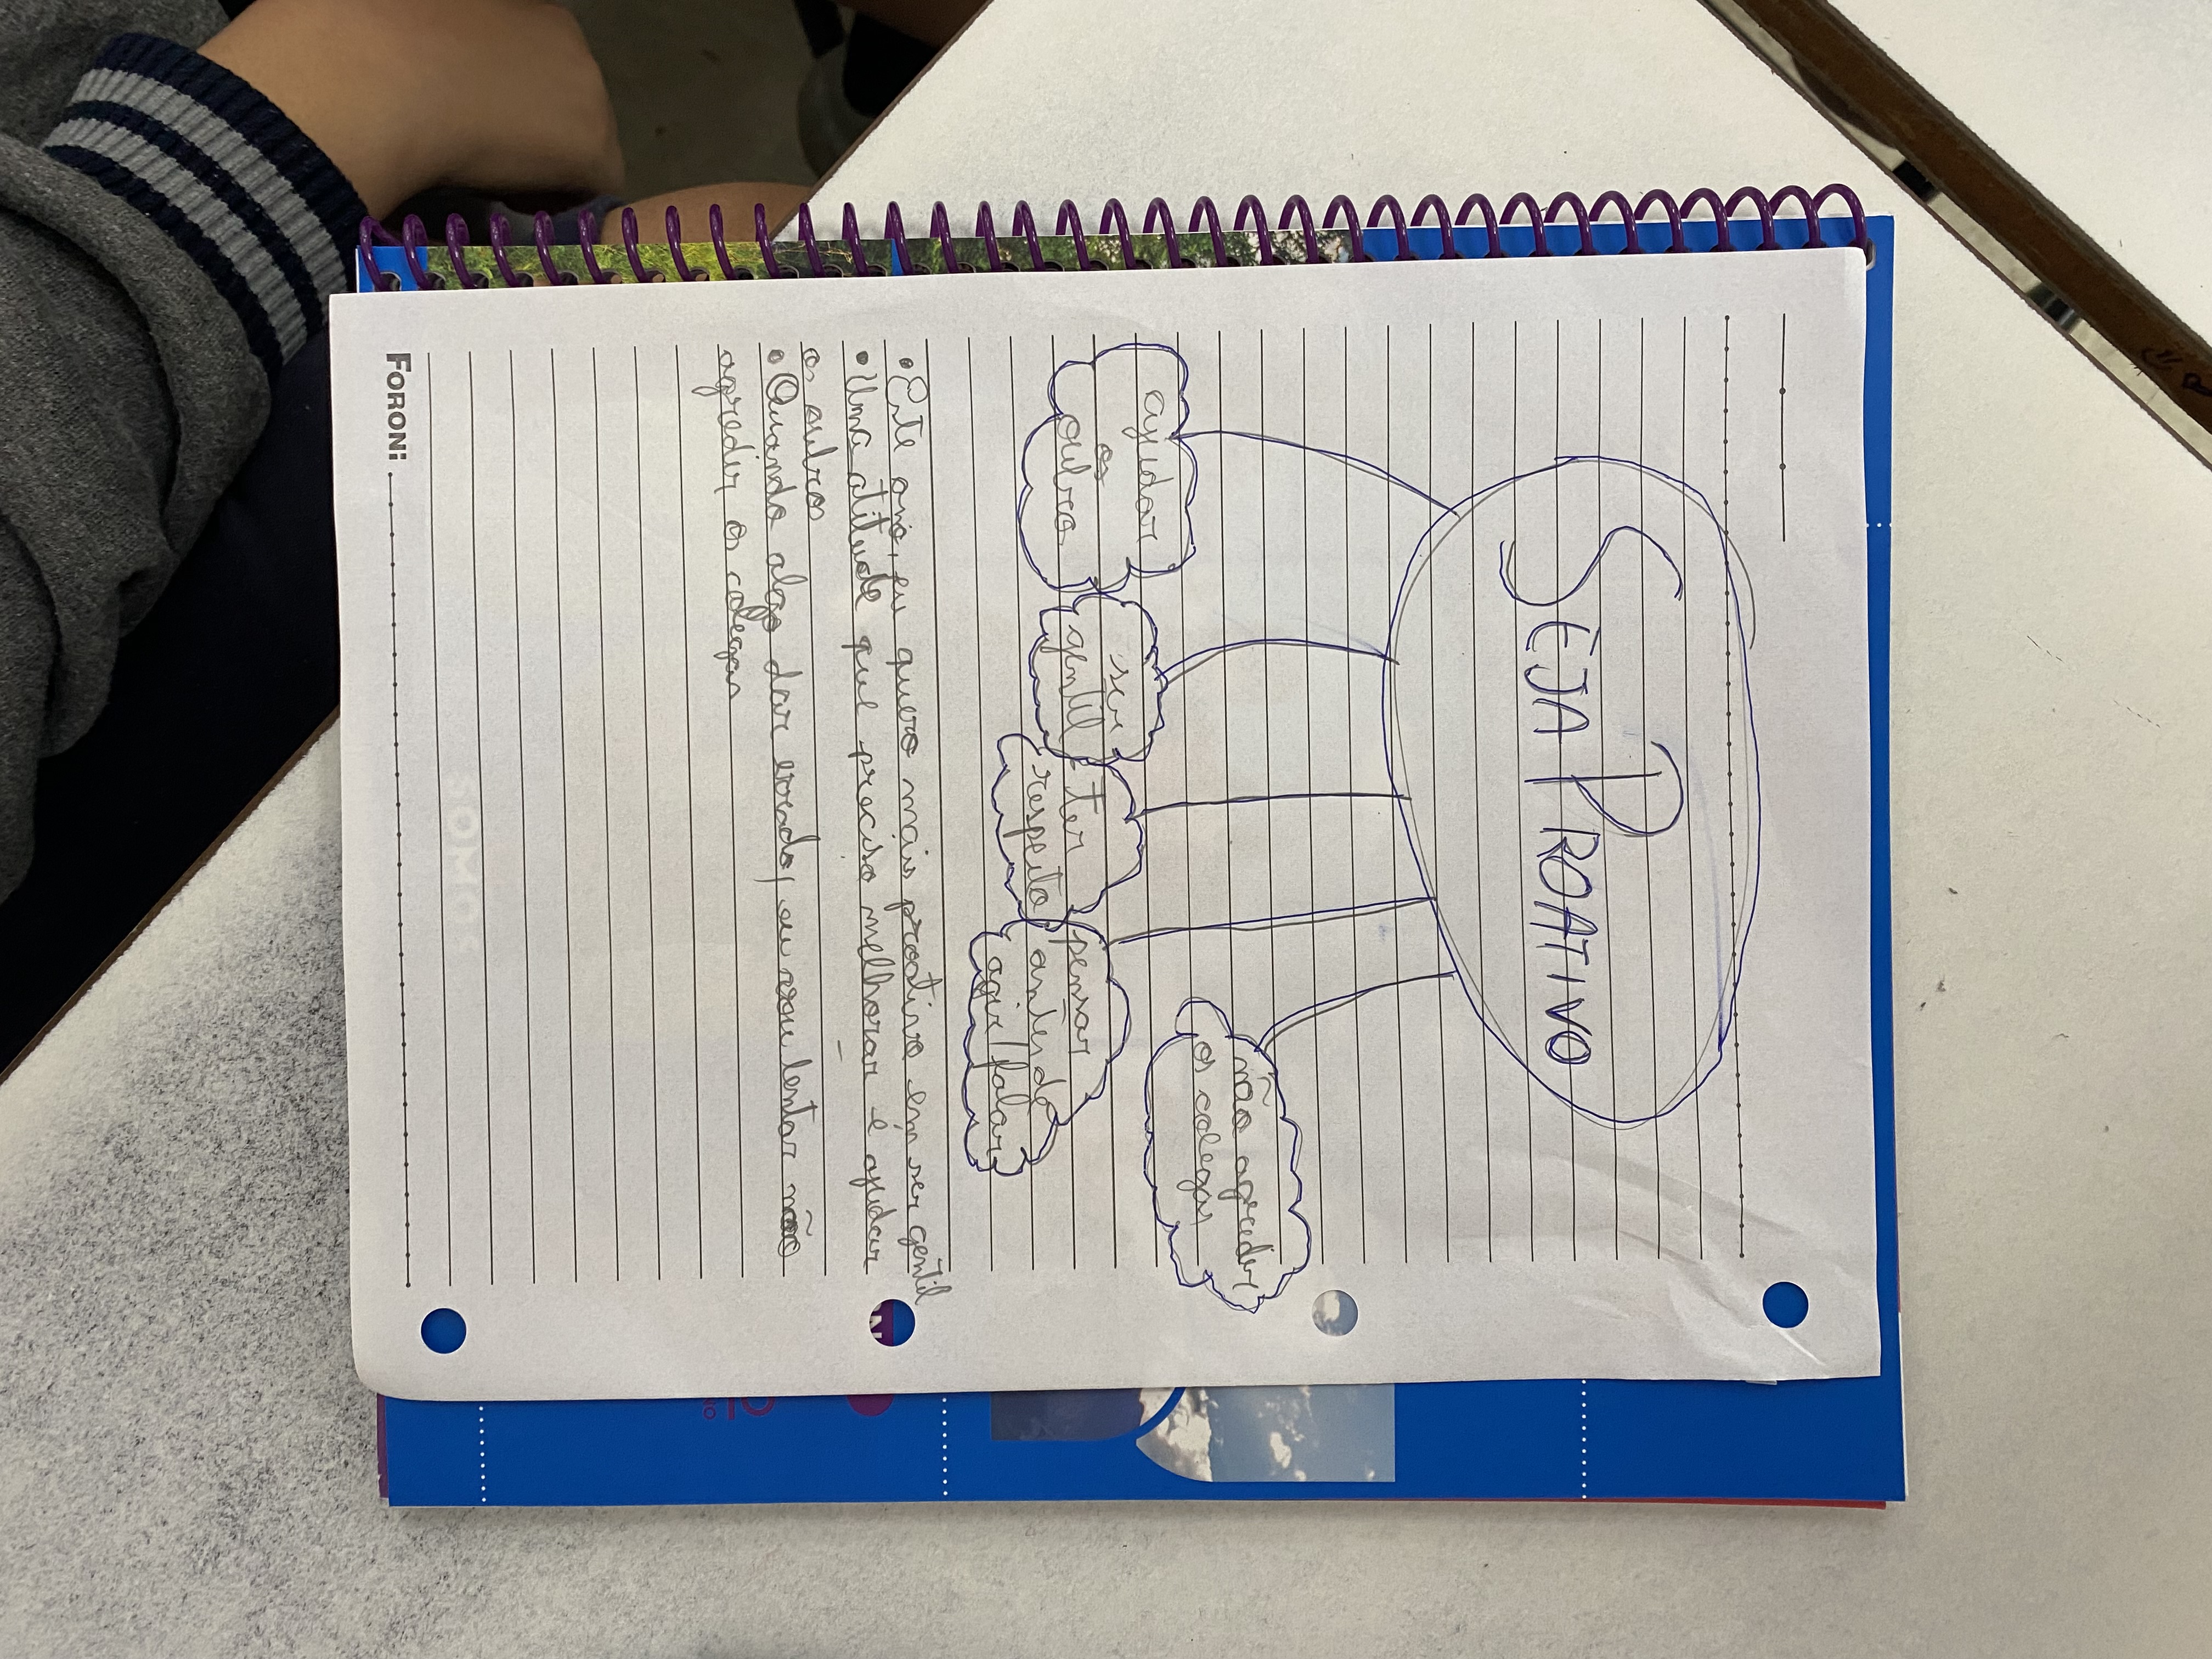 SEJA PROATIVO
ajudar
os
outros
ser
gentil
ter
respeito
pensar
antes de
agir/falar
não agredir
os colegas
• Este ano, eu quero mais proativo em ser gentil
• Uma atitude que preciso melhorar é ajudar
os outros
• Quando algo dar errado, eu vou tentar não
agredir os colegas
FORON:
SOMOS